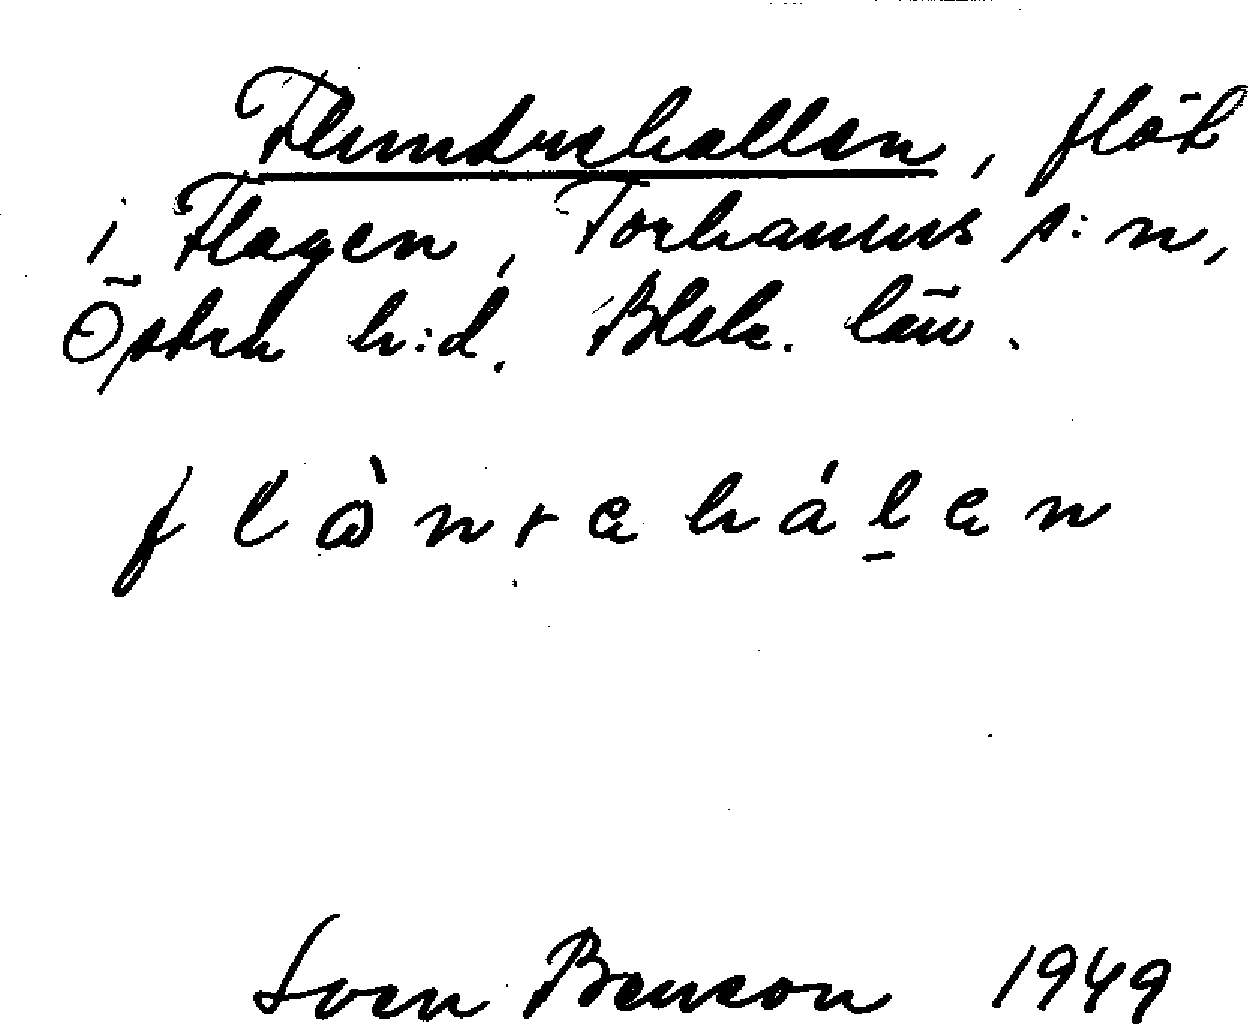 Flundrehallen, flöt
i Flagen, Torhamns s:n,
Östra h:d. Blek. län.
flə̀nrehál̠en
Sven Benson 1949